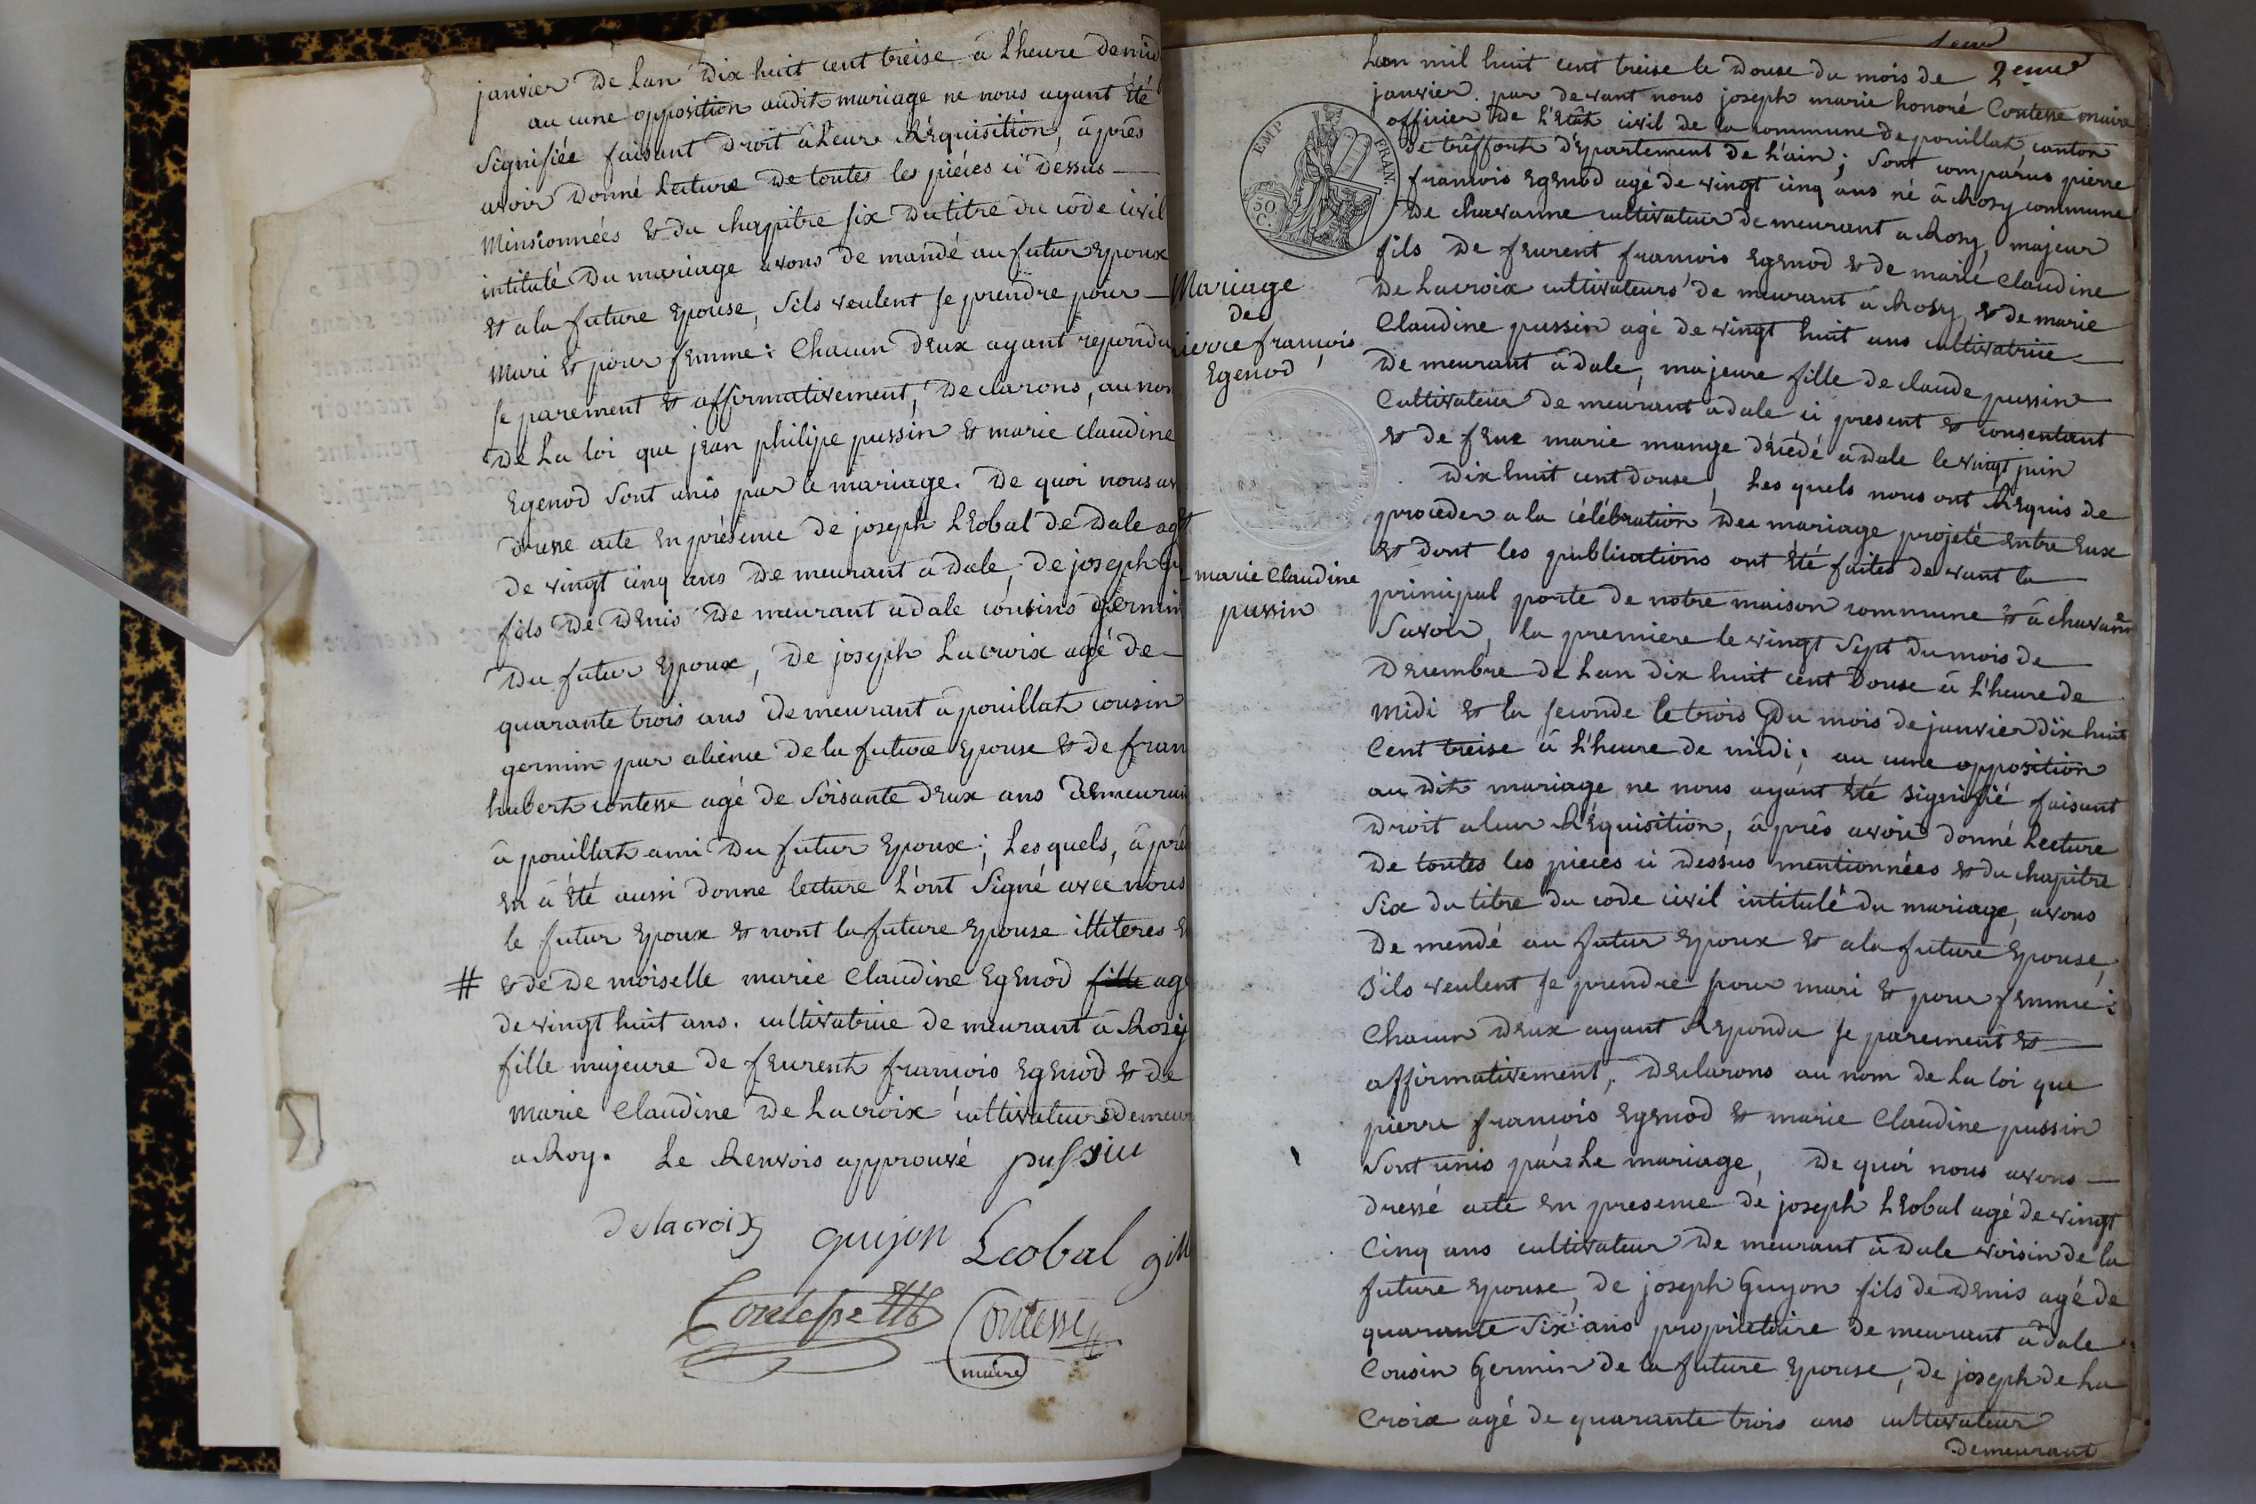 janvier de lan dix huit cent treise â L'heure de mid
au cune opposition audit mariage ne nous ayant été
signifiée faisant droit âleur Réquisition, âprès
avoir donné Lecture de toutes les piéces ci dessus
minsionnées & du chapitre six du titre du côde civil
intitulé Du mariage avons de mandé au futur Epoux
& a la future Epouse, Sils veulent se prendre pour
mari & pour femme: Chacun deux ayant repondu
se parement & affirmativement, declarons, au nom
de La loi que jean philipe pussin & marie claudine
Egenod sont unis par le mariage. de quoi nous av
dresse acte en présence de joseph Leobal de dale agé
de vingt cinq ans de meurant a dale, de joseph gu
fils de denis de meurant a dale cousins germin
du futur Epoux, de joseph Lacroix agé de
quarante trois ans demeurant â pouillat cousin
germin par alience de la future Epouse & de fran
hubert contesse agé de soisante deux ans demeuran
â pouillat ami du futur Epoux; Lesquels, âpré
en â été aussi donne lecture L'ont signé avec nous
le futur Epoux & nont la future Epouse illiteres
# & de de moiselle marie claudine Egenod fille agé
de vingt huit ans. cultivatrice de meurant â Rosy
fille majeure de feurent françois Egenod & de
marie claudine de Lacroix cultivateurs demeur
a Roy. Le Renvois approuvé pussin
delacroix guyon Leobal
Contesse Contesse
maire
2eme
Lan mil huit cent treise le douse du mois de
janvier par devant nous joseph marie honoré Contesse maire
officier de L'Etat civil de la commune de pouillat canton
de treffort département de L'ain; sont comparus pierre
françois Egenod agé de vingt cinq ans né â Rosy commune
de chavanne cultivateur de meurant a Rosy, majeur
fils de feurent françois Egenod & de marie claudine
de Lacroix cultivateurs de meurant â Rosy & de marie
Claudine pussin agé de vingt huit ans cultivatrice
de meurant â dale, majeure fille de claude pussin
Cultivateur de meurant a dale ci present & consentant
& de feue marie mange décédé a dale le vingt juin
dix huit cent douse, Lesquels nous ont Requis de
proceder a la célébration du mariage projeté entre Eux
& dont les publications ont été faites devant la
principal porte de notre maison commune & â chavanne
Savoir, la premiere le vingt sept du mois de
decembre de Lan dix huit cent douse â L'heure de
midi & la seconde le trois du mois de janvier dix huit
Cent treise â L'heure de midi; au cune opposition
au dit mariage ne nous ayant été signifié faisant
droit a leur Réquisition, âprès avoir donné Lecture
de toutes les pieces ci dessus mentionnées & du chapitre
six du titre du code civil intitulé du mariage, avons
de mendé au futur Epoux & a la future Epouse,
s'ils veulent se prendre pour mari & pour femme:
Chacun deux ayant Repondu se parement &
affirmativement, declarons au nom de La loi que
pierre françois Egenod & marie Claudine pussin
sont unis par Le mariage, de quoi nous avons
dressé acte en presence de joseph Leobal agé de vingt
Cinq ans cultivateur de meurant â dale voisin de la
future Epouse, de joseph Guyon fils de denis agé de
quarante six ans proprietaire de meurant â dale
Cousin Germin de la future Epouse, de joseph de La
Croix agé de quarante trois ans cultivateur
demeurant
EMP. FRAN.
50 C.
Mariage
de
pierre françois
Egenod
marie Claudine
pussin